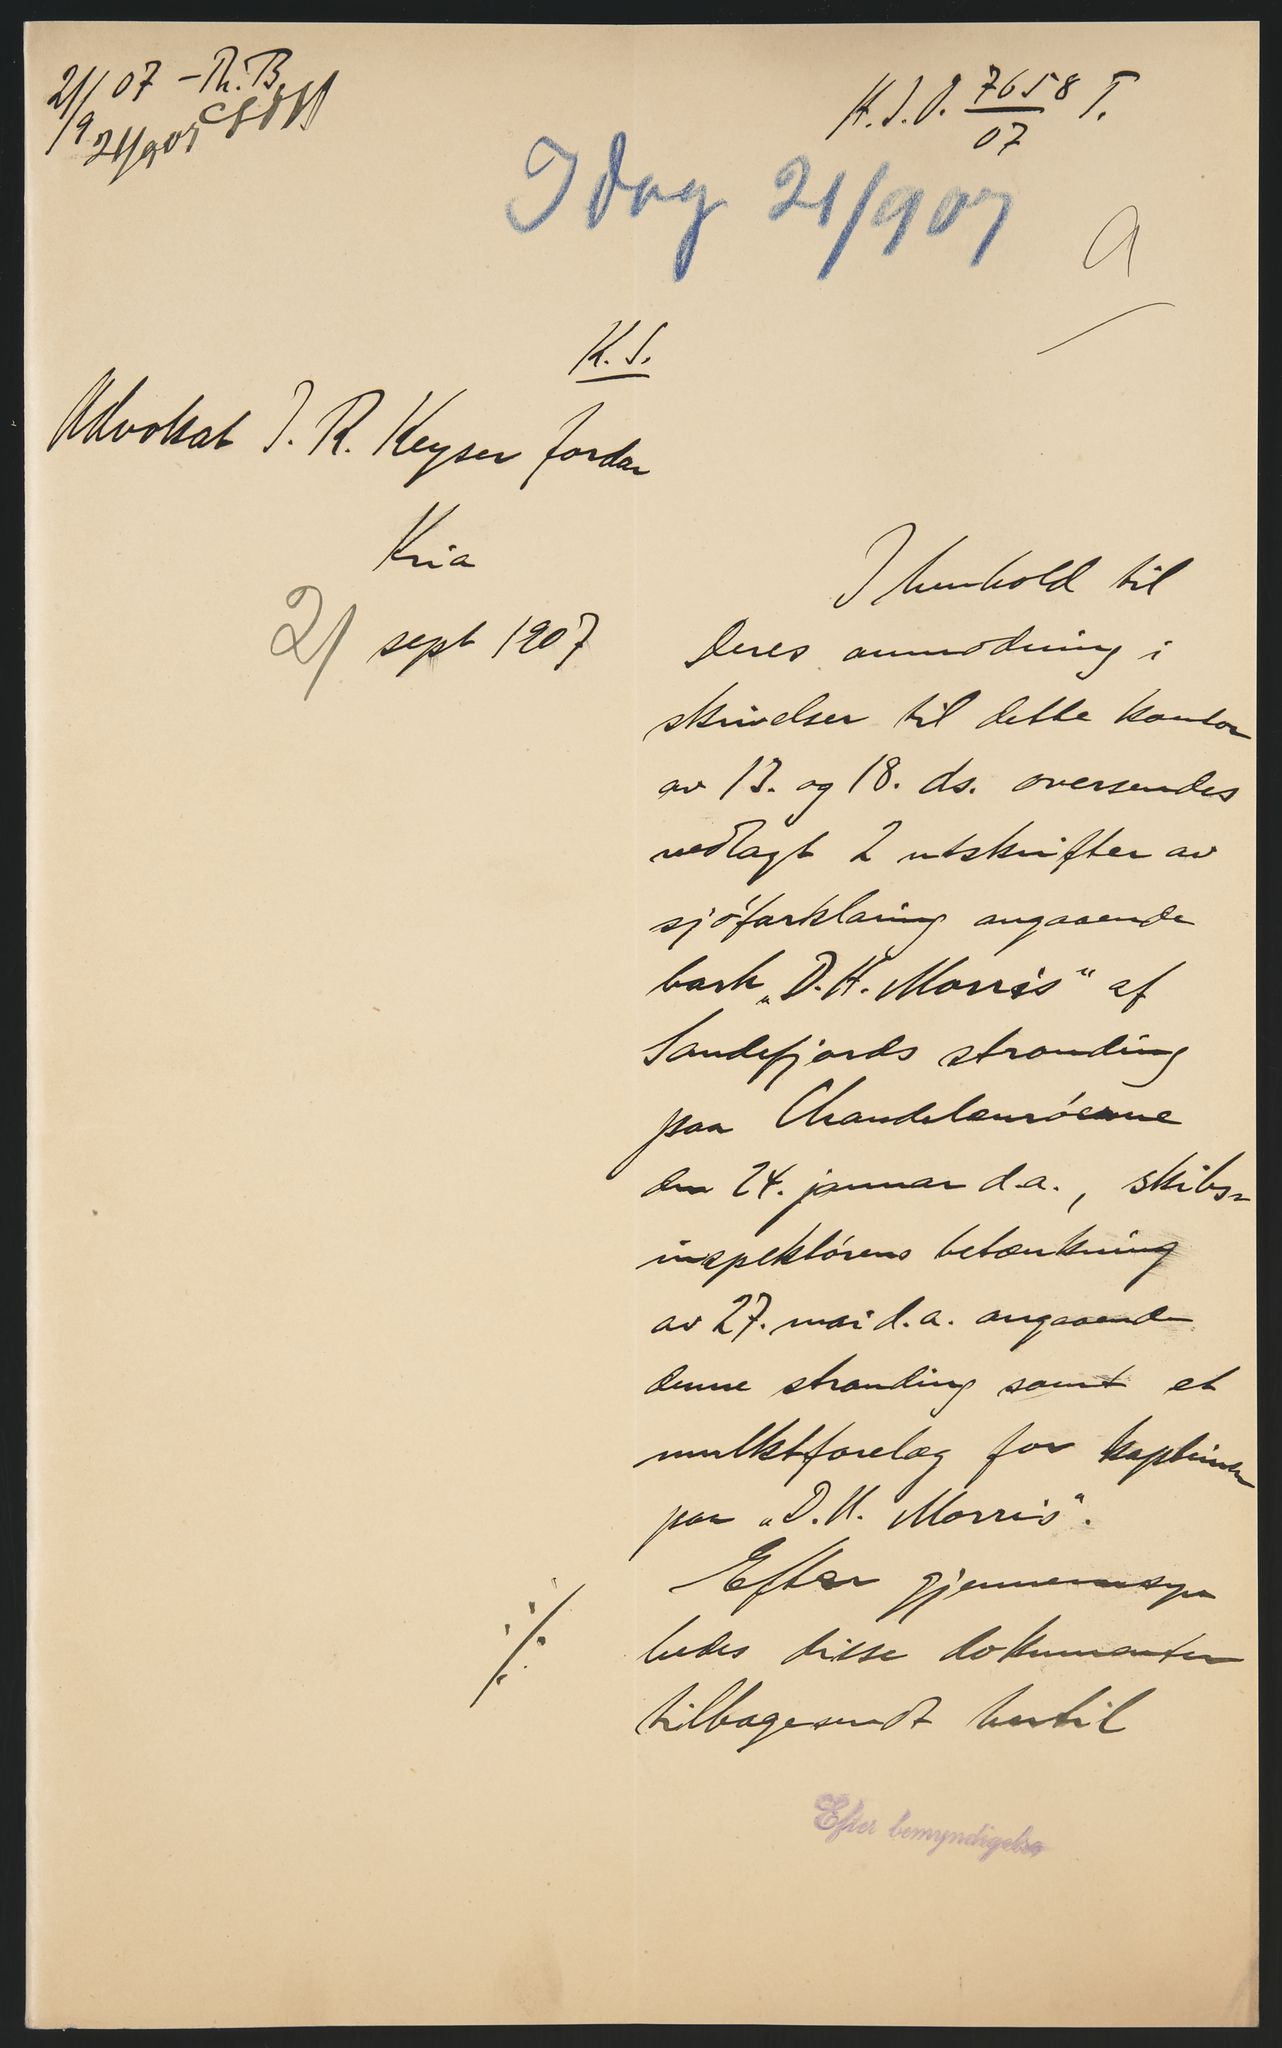 21/9 07 - Th. B.
21/9 07
K. S. J. 7658/07 T.
I dag 21/9 07
a
K. S.
Advokat J. R. Keyser Jordan
Kria
21 sept 1907
I henhold til
Deres anmodning i
skrivelser til dette kontor
av 13. og 18. ds. oversendes
vedlagt 2 utskrifter av
sjöforklaring angaaende
bark „D. H. Morris" af
Sandefjords stranding
paa Chandeleuröerne
den 24. januar d.a., skibs-
inspektörens betænkning
av 27. mai d.a. angaaende
denne stranding samt et
mulktforelæg for kapteinen
paa „D. H. Morris".
Efter gjennemsyn
bedes disse dokumenter
tilbagesendt hertil
Efter bemyndigelse